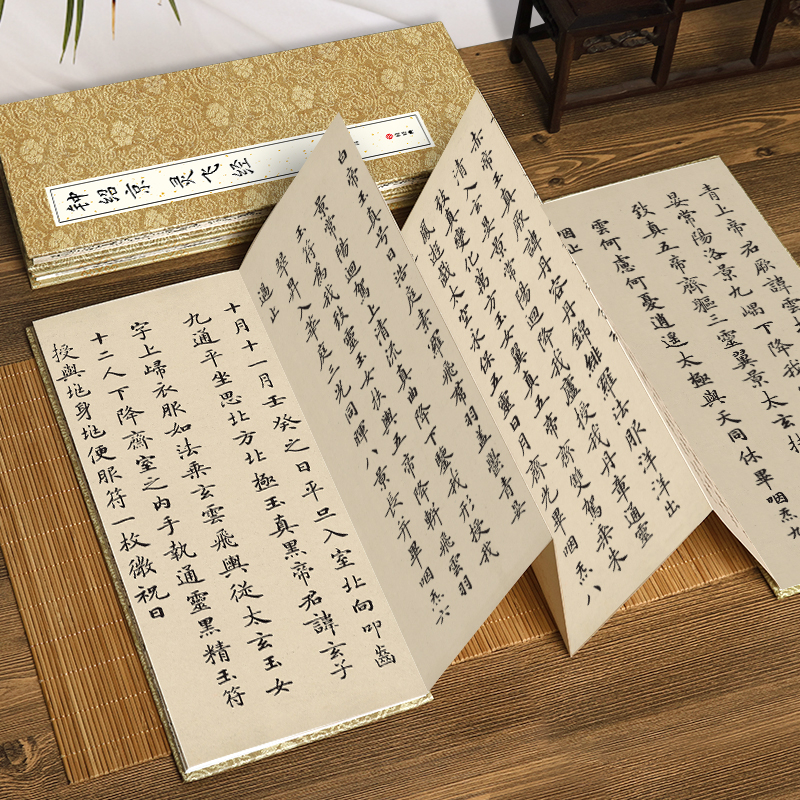 钟绍京 灵飞经
青上帝君厥諱雲
晏常陽洛景九嵎下降我
致真五帝齊軀三靈翼景太玄扶
雲何慮何憂逍遥太極與天同休畢咽炁九
咽止
赤帝玉真厥諱丹容丹錦緋羅法服洋洋出
清入玄晏景常陽迴降我廬授我丹章通靈
致真變化萬方玉女翼真五帝齊雙駕乘朱
鳳遊戲太空永保五靈日月齊光畢咽炁八
白帝玉真号曰浩庭素羅飛裙羽盖鬱青晏
景常陽迴駕上清流真曲降下鑒我形授我
玉符為我致靈玉女扶輿五帝降軿飛雲羽
翠昇入華庭三光同暉八景長并畢咽炁六
過止
十月十一月壬癸之日平旦入室北向叩齒
九通平坐思北方北極玉真黑帝君諱玄子
字上歸衣服如法乘玄雲飛輿從太玄玉女
十二人下降齋室之内手執通靈黑精玉符
授與兆身兆便服符一枚微祝曰